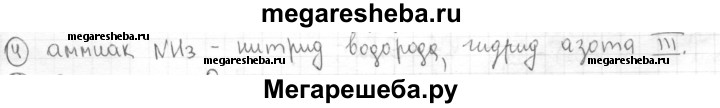 megaresheba.ru
④ аммиак NH₃ - нитрид водорода, гидрид азота III.
megaresheba.ru megaresheba.ru
Мегарешеба.ру